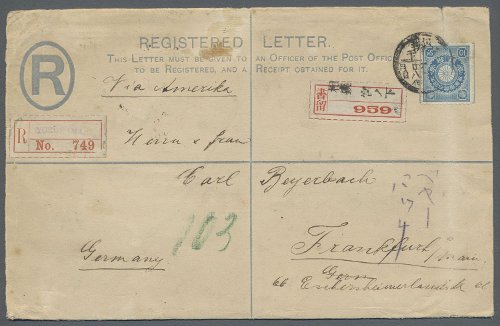 REGISTERED LETTER.
THIS LETTER MUST BE GIVEN TO AN OFFICER OF THE POST OFFICE
TO BE REGISTERED, AND A RECEIPT OBTAINED FOR IT.
R
Via Amerika
書留
959
R
YOKOHAMA
No. 749
Herrn & Frau
Carl Beyerbach
103
Frankfurt a/Main
Germany
66